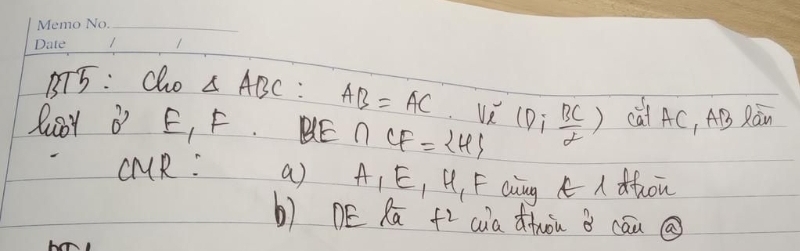 Memo No.
Date / /
BT5 : Cho Δ ABC : AB = AC . Vẽ (D; BC/2) cắt AC, AB lần
lượt ở E, F . BE ∩ CF = {H}
CMR : a) A, E, H, F cùng ∈ 1 đtròn
b) DE là t² của đtròn ở câu ⓐ